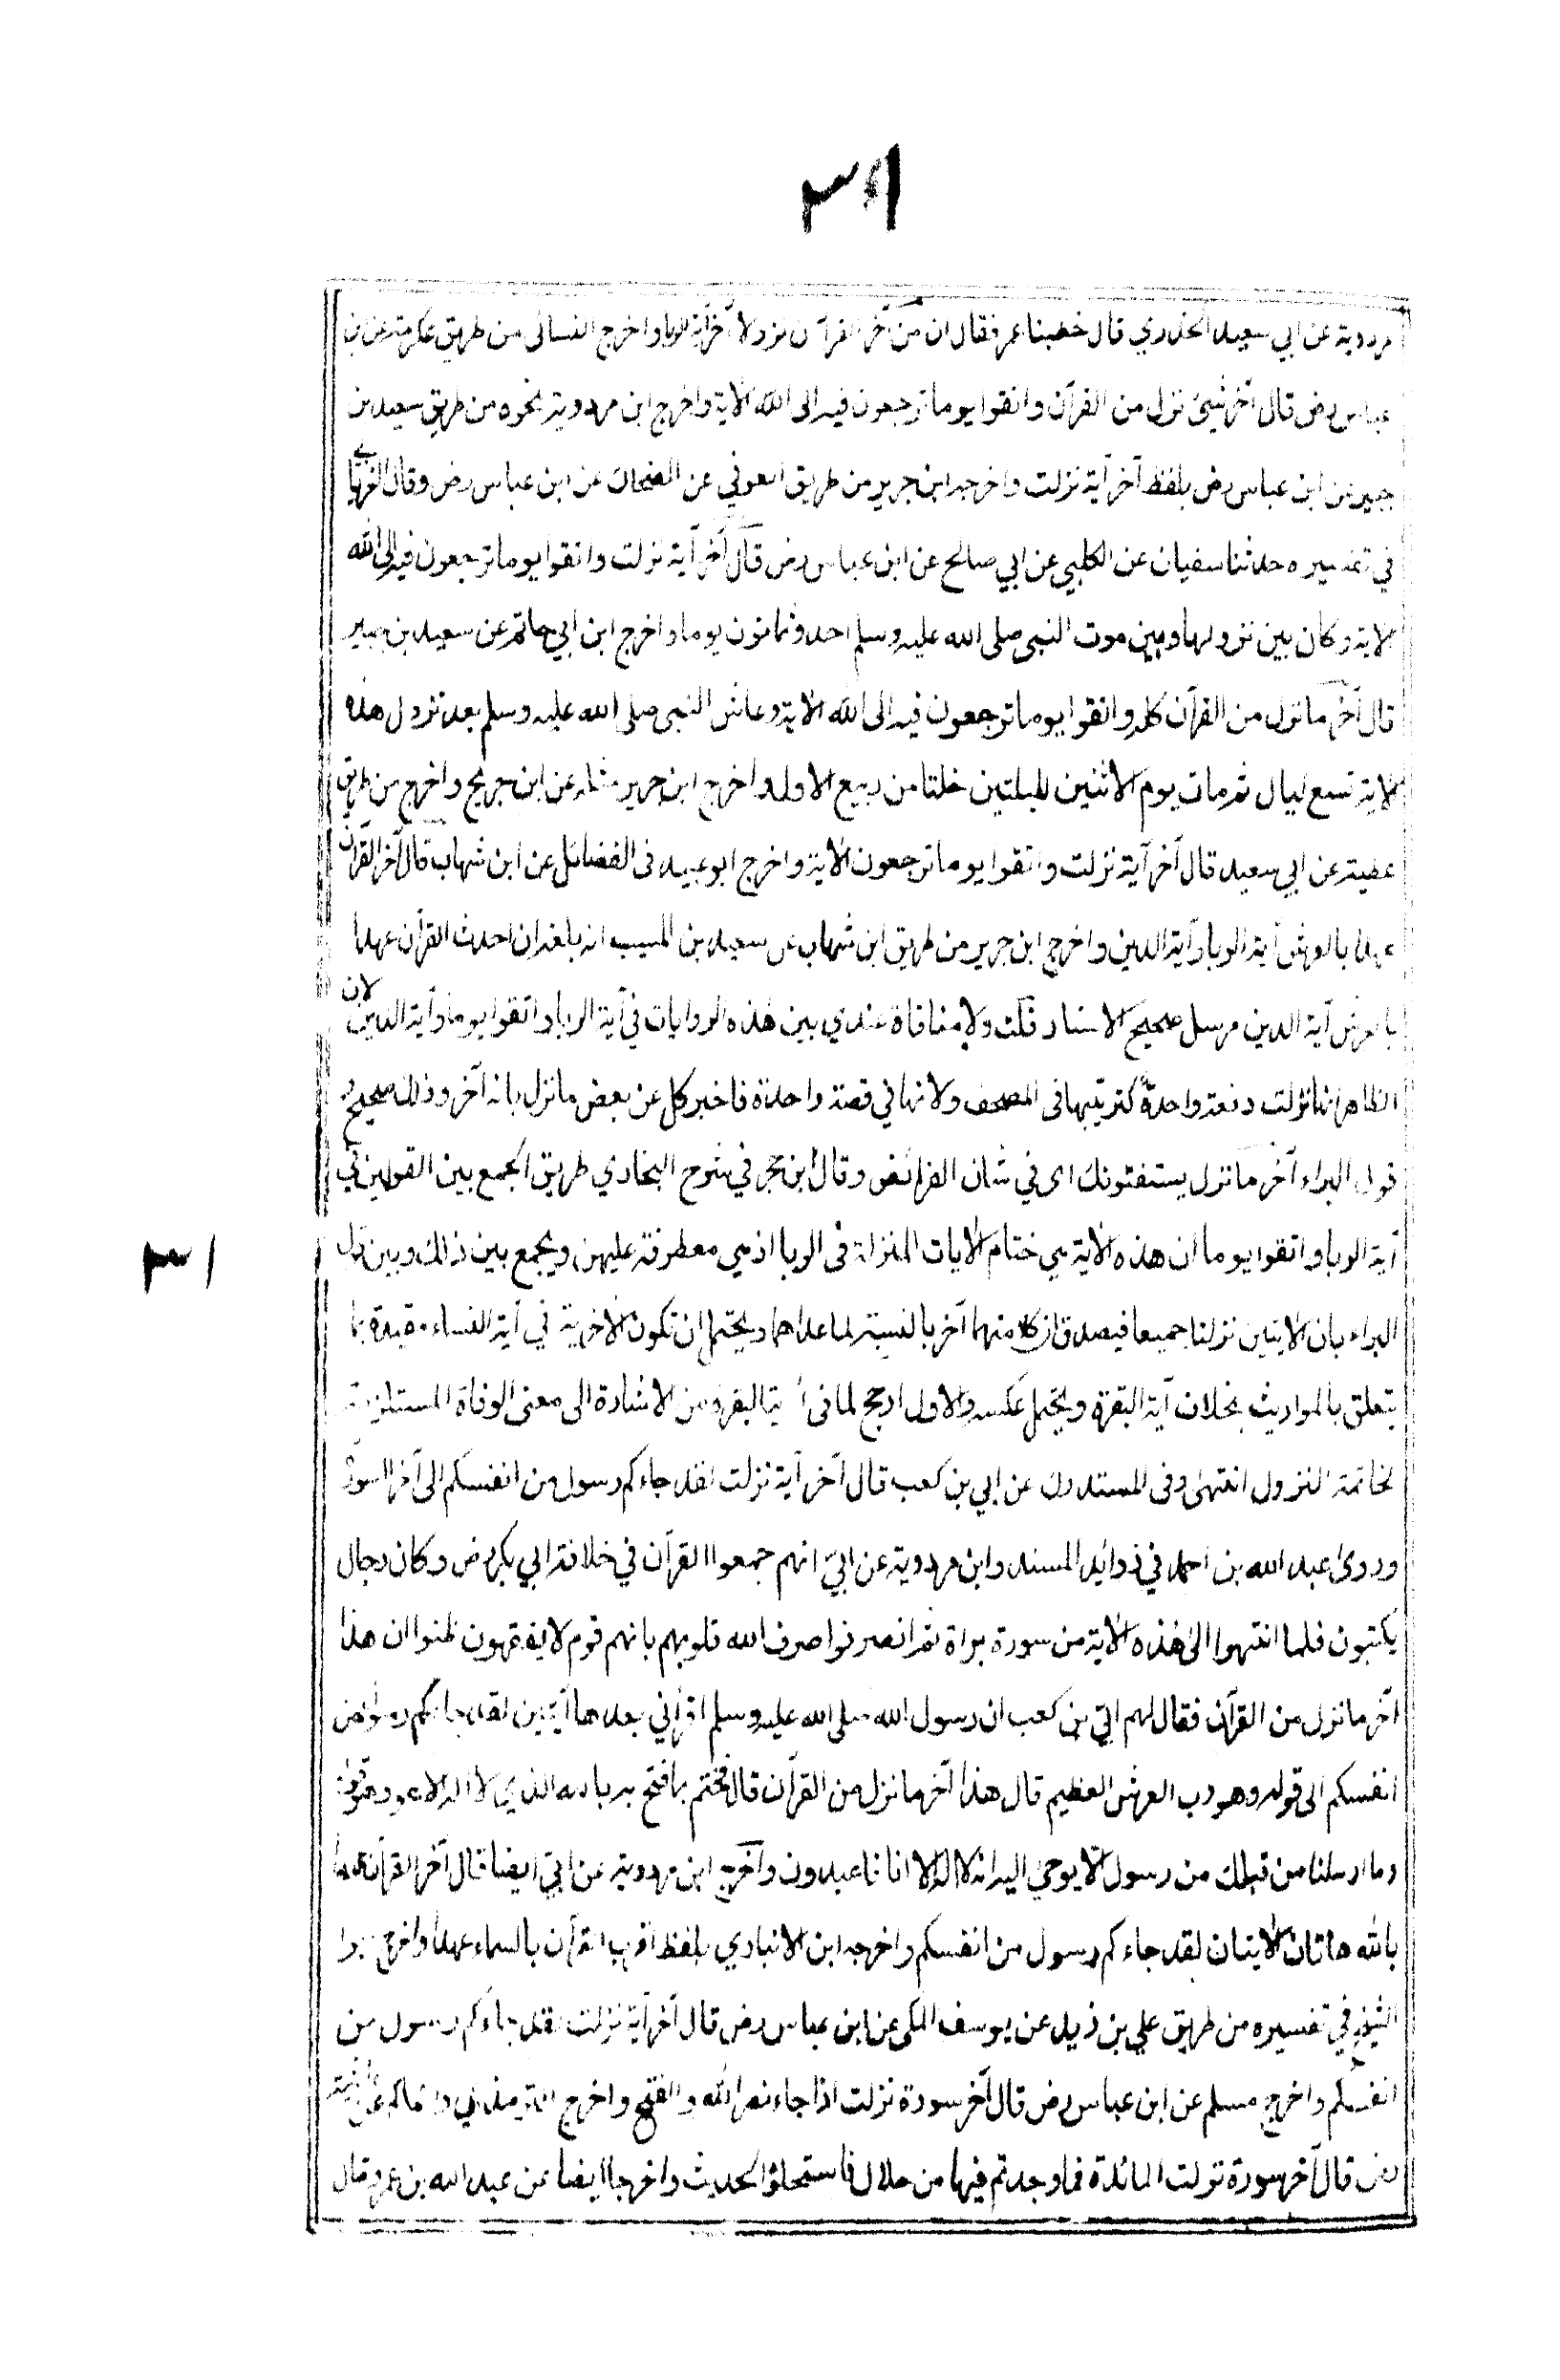 ٣١
مردوية عن ابي سعيد الخدري قال خطبنا عمر فقال ان من آخر القرآن نزولا آخر آية الربا واخرج النسائى من طريق عكرمة عن بن
عباس رض قال آخر شيئ نزل من القرآن واتقوا يوما ترجعون فيه الى الله الاية واخرج ابن مردوية نحوه من طريق سعيد بن
جبير عن ابن عباس رض بلفظ آخر آية نزلت واخرجه ابن جرير من طريق العوفي عن الضحاك عن ابن عباس رض وقال الفريابي
في تفسيره حدثنا سفيان عن الكلبي عن ابي صالح عن ابن عباس رض قال آخر آية نزلت واتقوا يوما ترجعون فيه الى الله
الاية وكان بين نزولها وبين موت النبي صلى الله عليه وسلم احد وثمانون يوما واخرج ابن ابي حاتم عن سعيد بن جبير
قال آخر ما نزل من القرآن كله واتقوا يوما ترجعون فيه الى الله الاية وعاش النبي صلى الله عليه وسلم بعد نزول هذه
الاية تسع ليال ثم مات يوم الاثنين لليلتين خلتا من ربيع الاول واخرج ابن جرير مثله عن ابن جريج واخرج من طريق
عطية عن ابي سعيد قال آخر آية نزلت واتقوا يوما ترجعون الاية واخرج ابو عبيد فى الفضائل عن ابن شهاب قال آخر القرآن
عهدا بالعرش آية الربا وآية الدين واخرج ابن جرير من طريق ابن شهاب عن سعيد بن المسيب انه بلغه ان احدث القرآن عهدا
بالعرش آية الدين مرسل صحيح الاسناد قلت ولا منافاة عندي بين هذه الروايات في آية الربا واتقوا يوما وآية الدين لان
الظاهر انها نزلت دفعة واحدة كترتيبها فى المصحف ولانها في قصة واحدة فاخبر كل عن بعض ما نزل بانه آخر وذلك صحيح و
قول البراء آخر ما نزل يستفتونك اى في شان الفرائض وقال ابن حجر في شرح البخاري طريق الجمع بين القولين في
آية الربا واتقوا يوما ان هذه الاية هي ختام الايات المنزلة فى الربا اذ هي معطوفة عليهن ويجمع بين ذلك وبين قول
٣١
البراء بان الايتين نزلتا جميعا فيصدق ان كلا منهما آخر بالنسبة لما عداهما ويحتمل ان تكون الاخرية في آية النساء مقيدة بما
يتعلق بالمواريث بخلاف آية البقرة ويحتمل عكسه والاول ارجح لما فى آية البقرة من الاشارة الى معنى الوفاة المستلزمة
لخاتمة النزول انتهى وفى المستدرك عن ابي بن كعب قال آخر آية نزلت لقد جاءكم رسول من انفسكم الى آخر السورة
وروى عبد الله بن احمد في زوائد المسند وابن مردوية عن ابيّ انهم جمعوا القرآن في خلافة ابي بكر رض وكان رجال
يكتبون فلما انتهوا الى هذه الاية من سورة براة ثم انصرفوا صرف الله قلوبهم بانهم قوم لا يفقهون ظنوا ان هذا
آخر ما نزل من القرآن فقال لهم ابي بن كعب ان رسول الله صلى الله عليه وسلم اقرأني بعدها آيتين لقد جاءكم رسول من
انفسكم الى قوله وهو رب العرش العظيم قال هذا آخر ما نزل من القرآن قال فختم بما فتح به بالله الذي لا اله الا هو وهو قوله
وما ارسلنا من قبلك من رسول الا يوحى اليه انه لا اله الا انا فاعبدون واخرج ابن مردوية عن ابيّ ايضا قال آخر القرآن عهدا
بالله هاتان الايتان لقد جاءكم رسول من انفسكم واخرجه ابن الانباري بلفظ اقرب القرآن بالسماء عهدا واخرج ابو
الشيخ في تفسيره من طريق علي بن زيد عن يوسف المكى عن ابن عباس رض قال آخر آية نزلت لقد جاءكم رسول من
انفسكم واخرج مسلم عن ابن عباس رض قال آخر سورة نزلت اذا جاء نصر الله والفتح واخرج الترمذي والحاكم عن عائشة
رض قال آخر سورة نزلت المائدة فما وجدتم فيها من حلال فاستحلوا الحديث واخرجا ايضا عن عبد الله بن عمرو قال